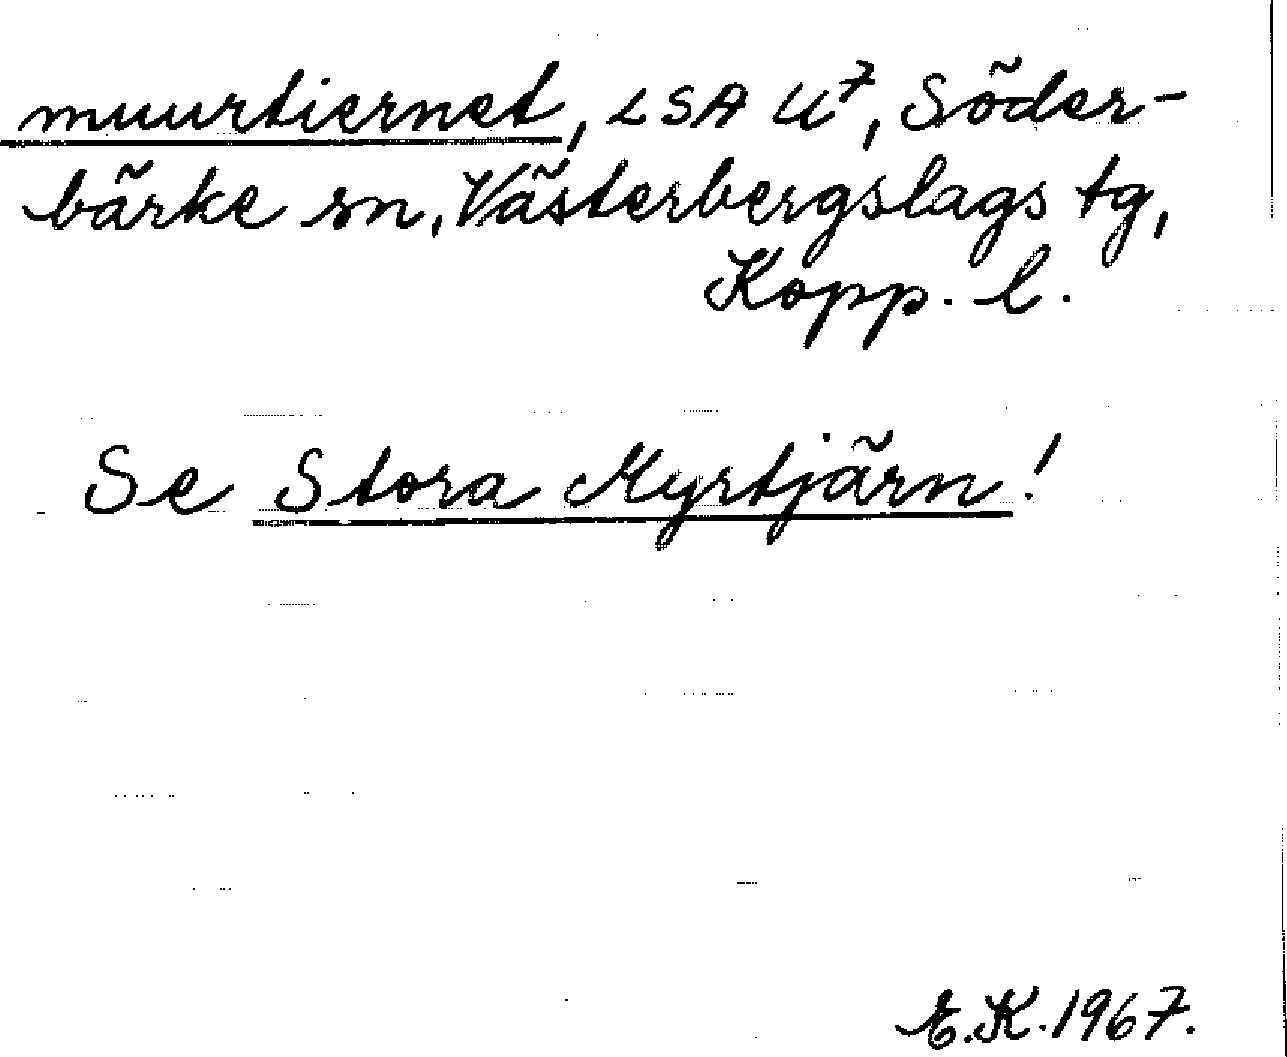 muurtiernet, LSA U⁷, Söder-
bärke sn, Västerbergslags tg,
Kopp. l.
Se Stora Myrtjärn!
E.K. 1967.